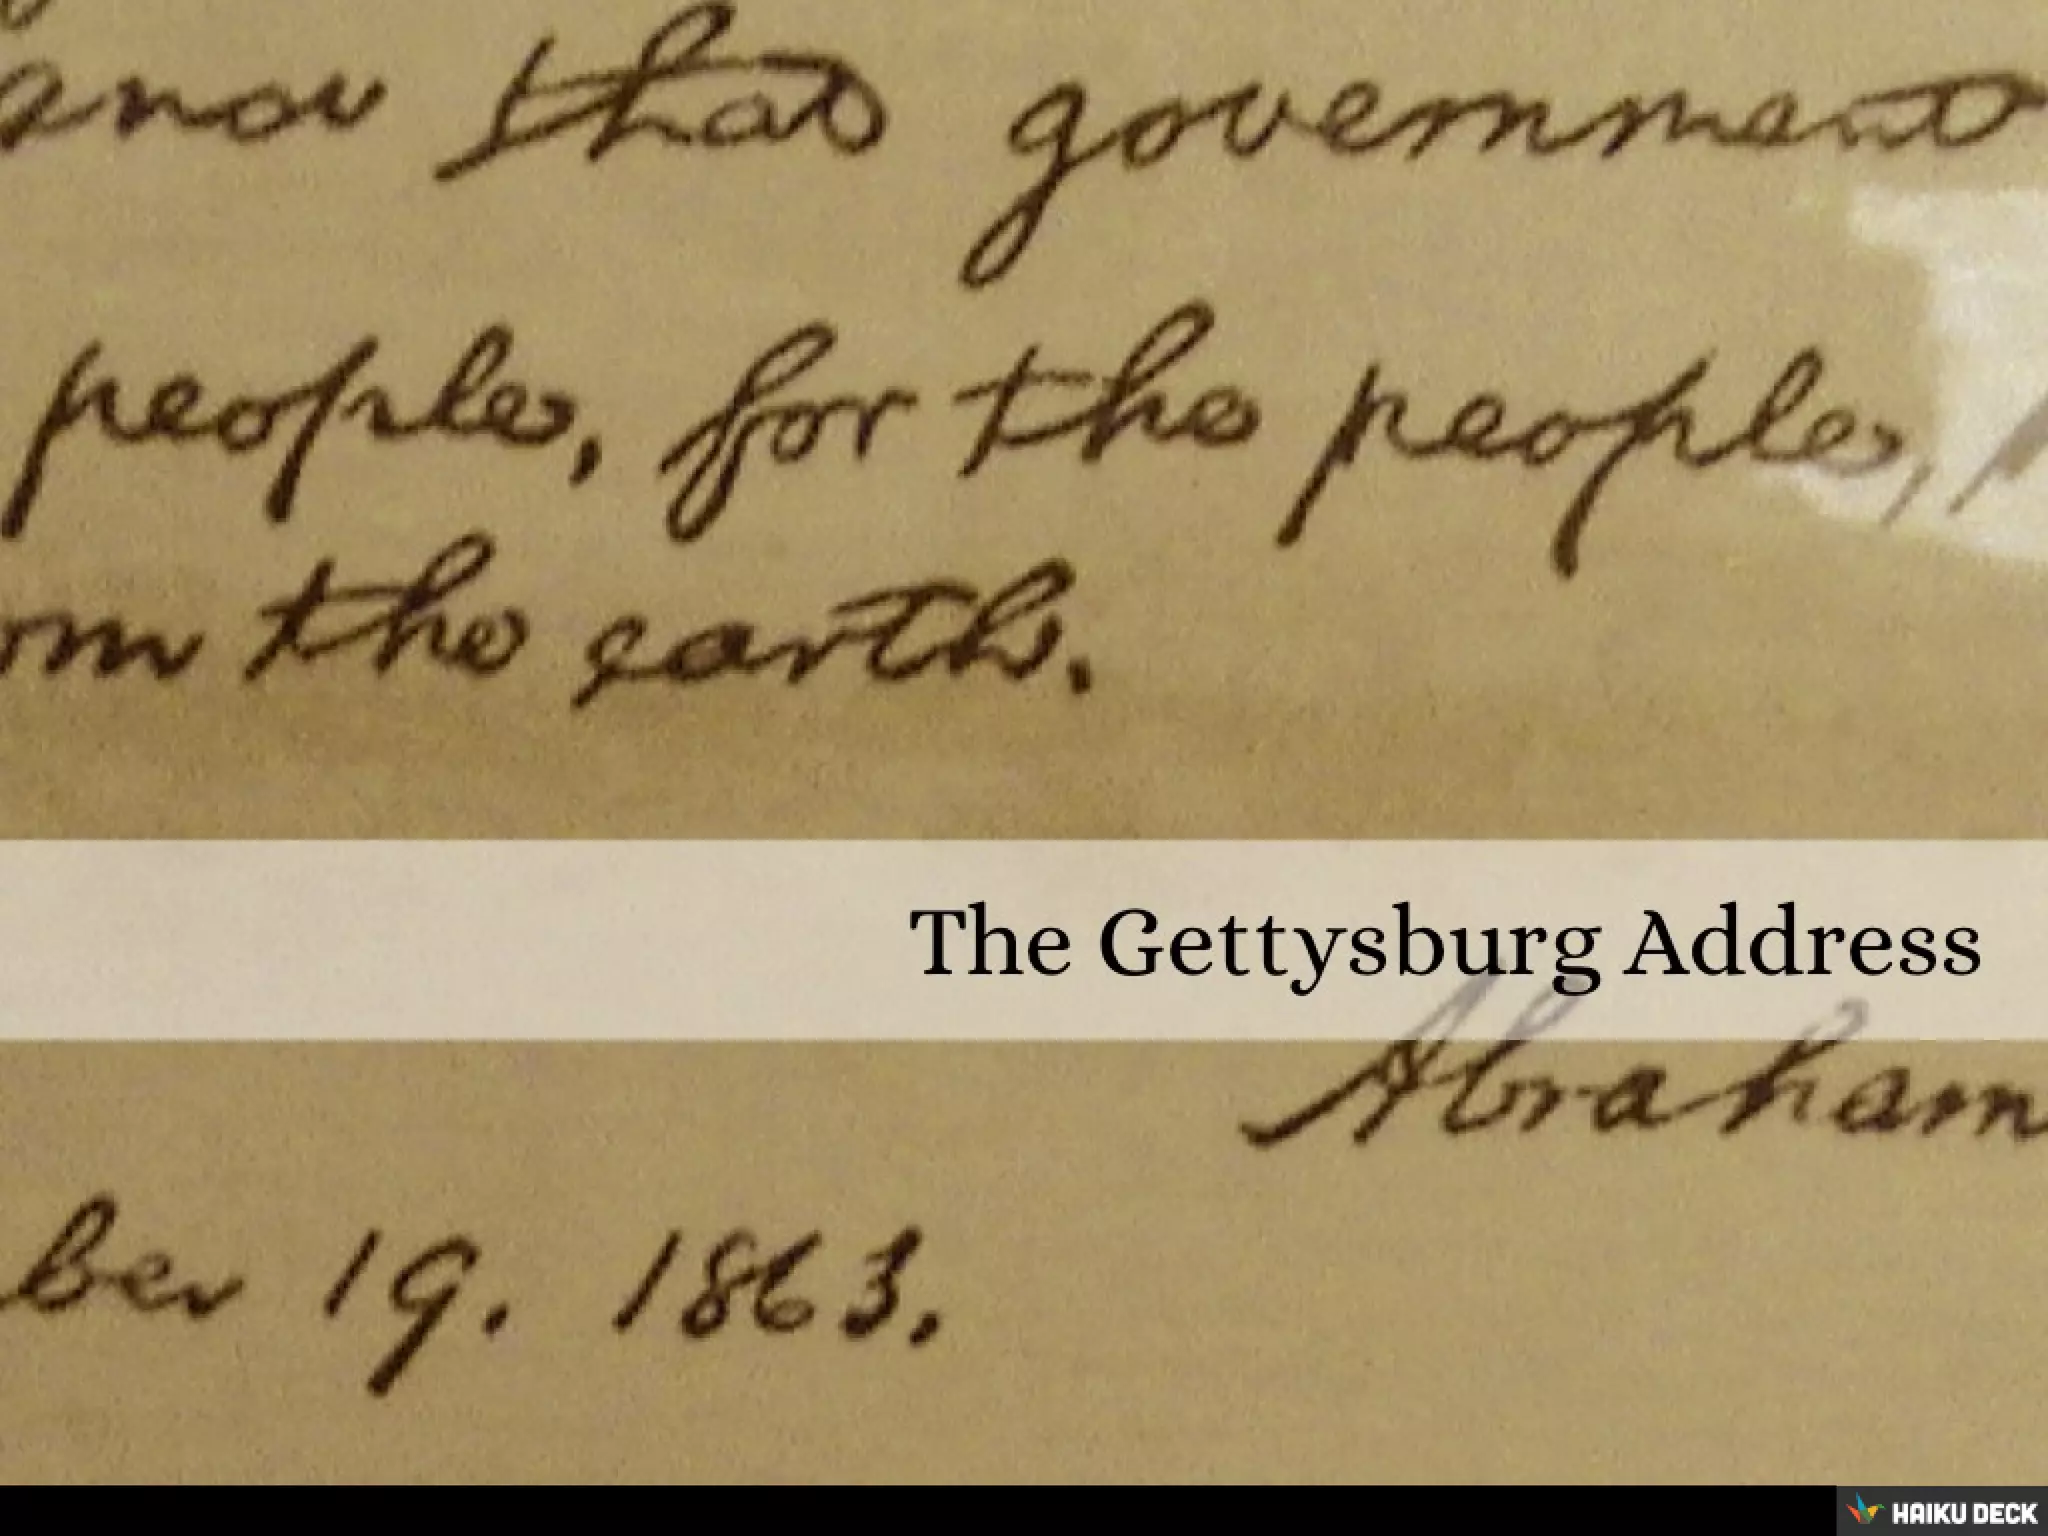 and that government
people, for the people,
om the earth.
The Gettysburg Address
Abraham
ber 19. 1863.
HAIKU DECK